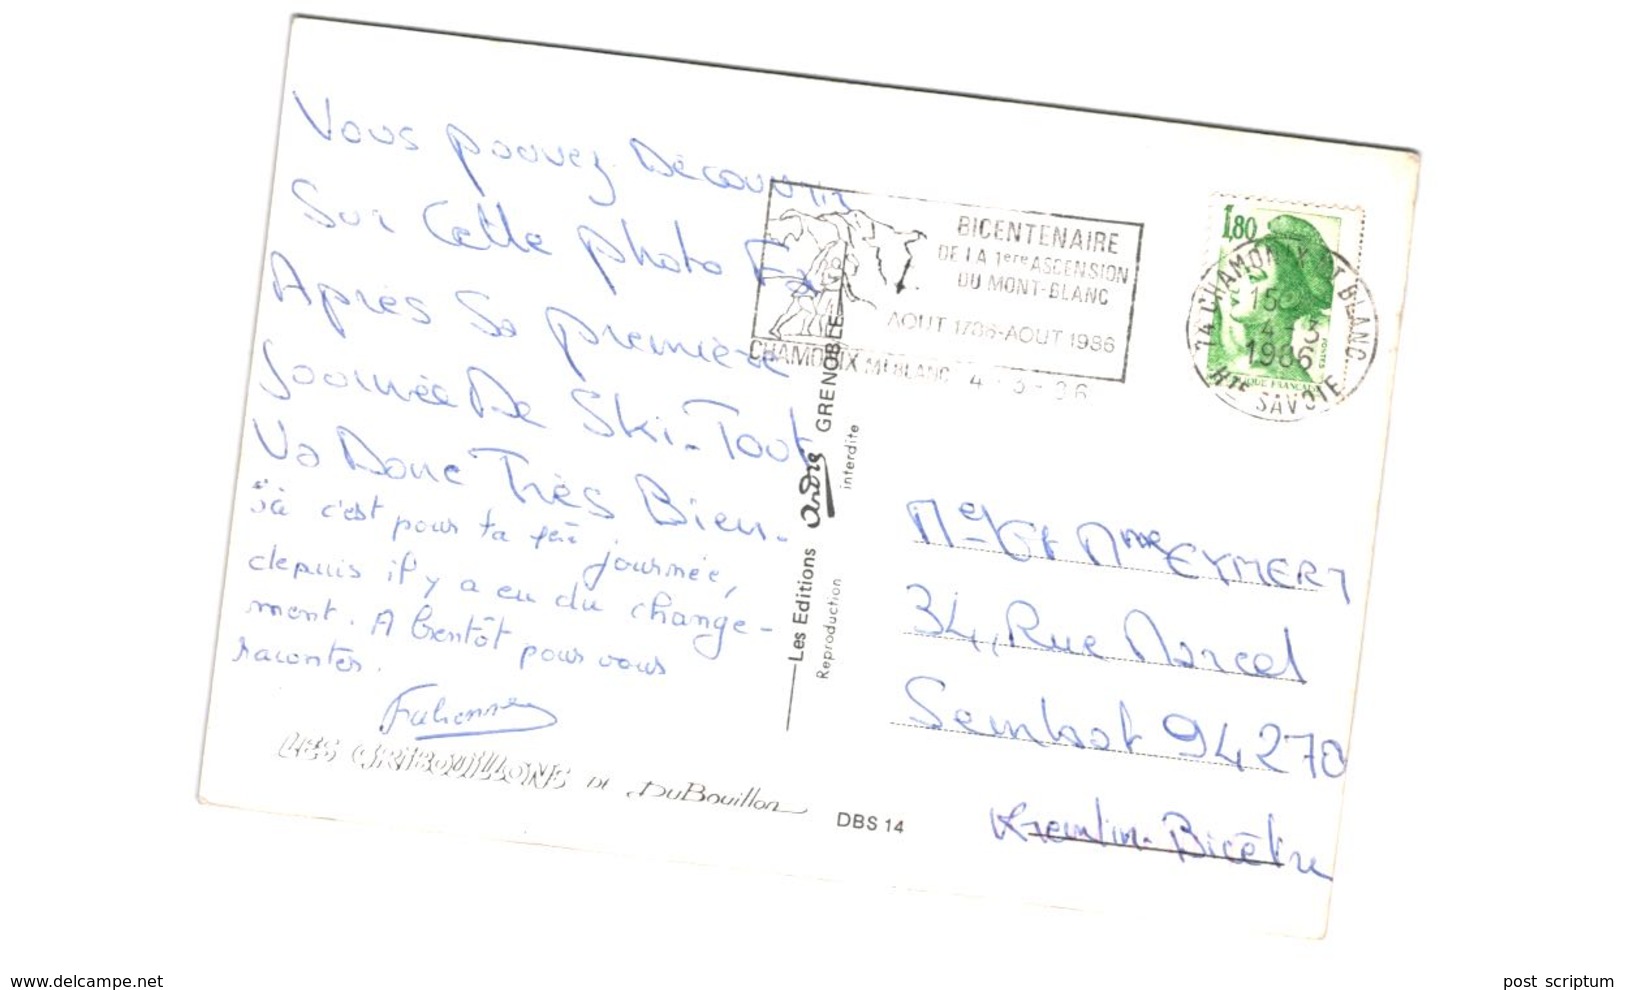 Vous pouvez Découvrir
Sur Cette photo Fa
Après Sa première
Journée De Ski-Tout
Va Donc Très Bien.
jà c'est pour ta 1ère journée,
depuis il y a eu du change-
ment. A bientôt pour vous
raconter.
Fabienne
LES GRIBOUILLONS DE DuBouillon
DBS 14
Les Editions André GRENOBLE
Reproduction interdite
BICENTENAIRE
DE LA 1ere ASCENSION
DU MONT-BLANC
AOUT 1786-AOUT 1986
CHAMONIX Mt BLANC 4-3-86
1,80
74 CHAMONIX MT BLANC
15H
4-3
1986
HTE SAVOIE
POSTES
Mr Et Mme EYMERY
34, Rue Marcel
Sembat 94270
Kremlin-Bicêtre
www.delcampe.net
post scriptum